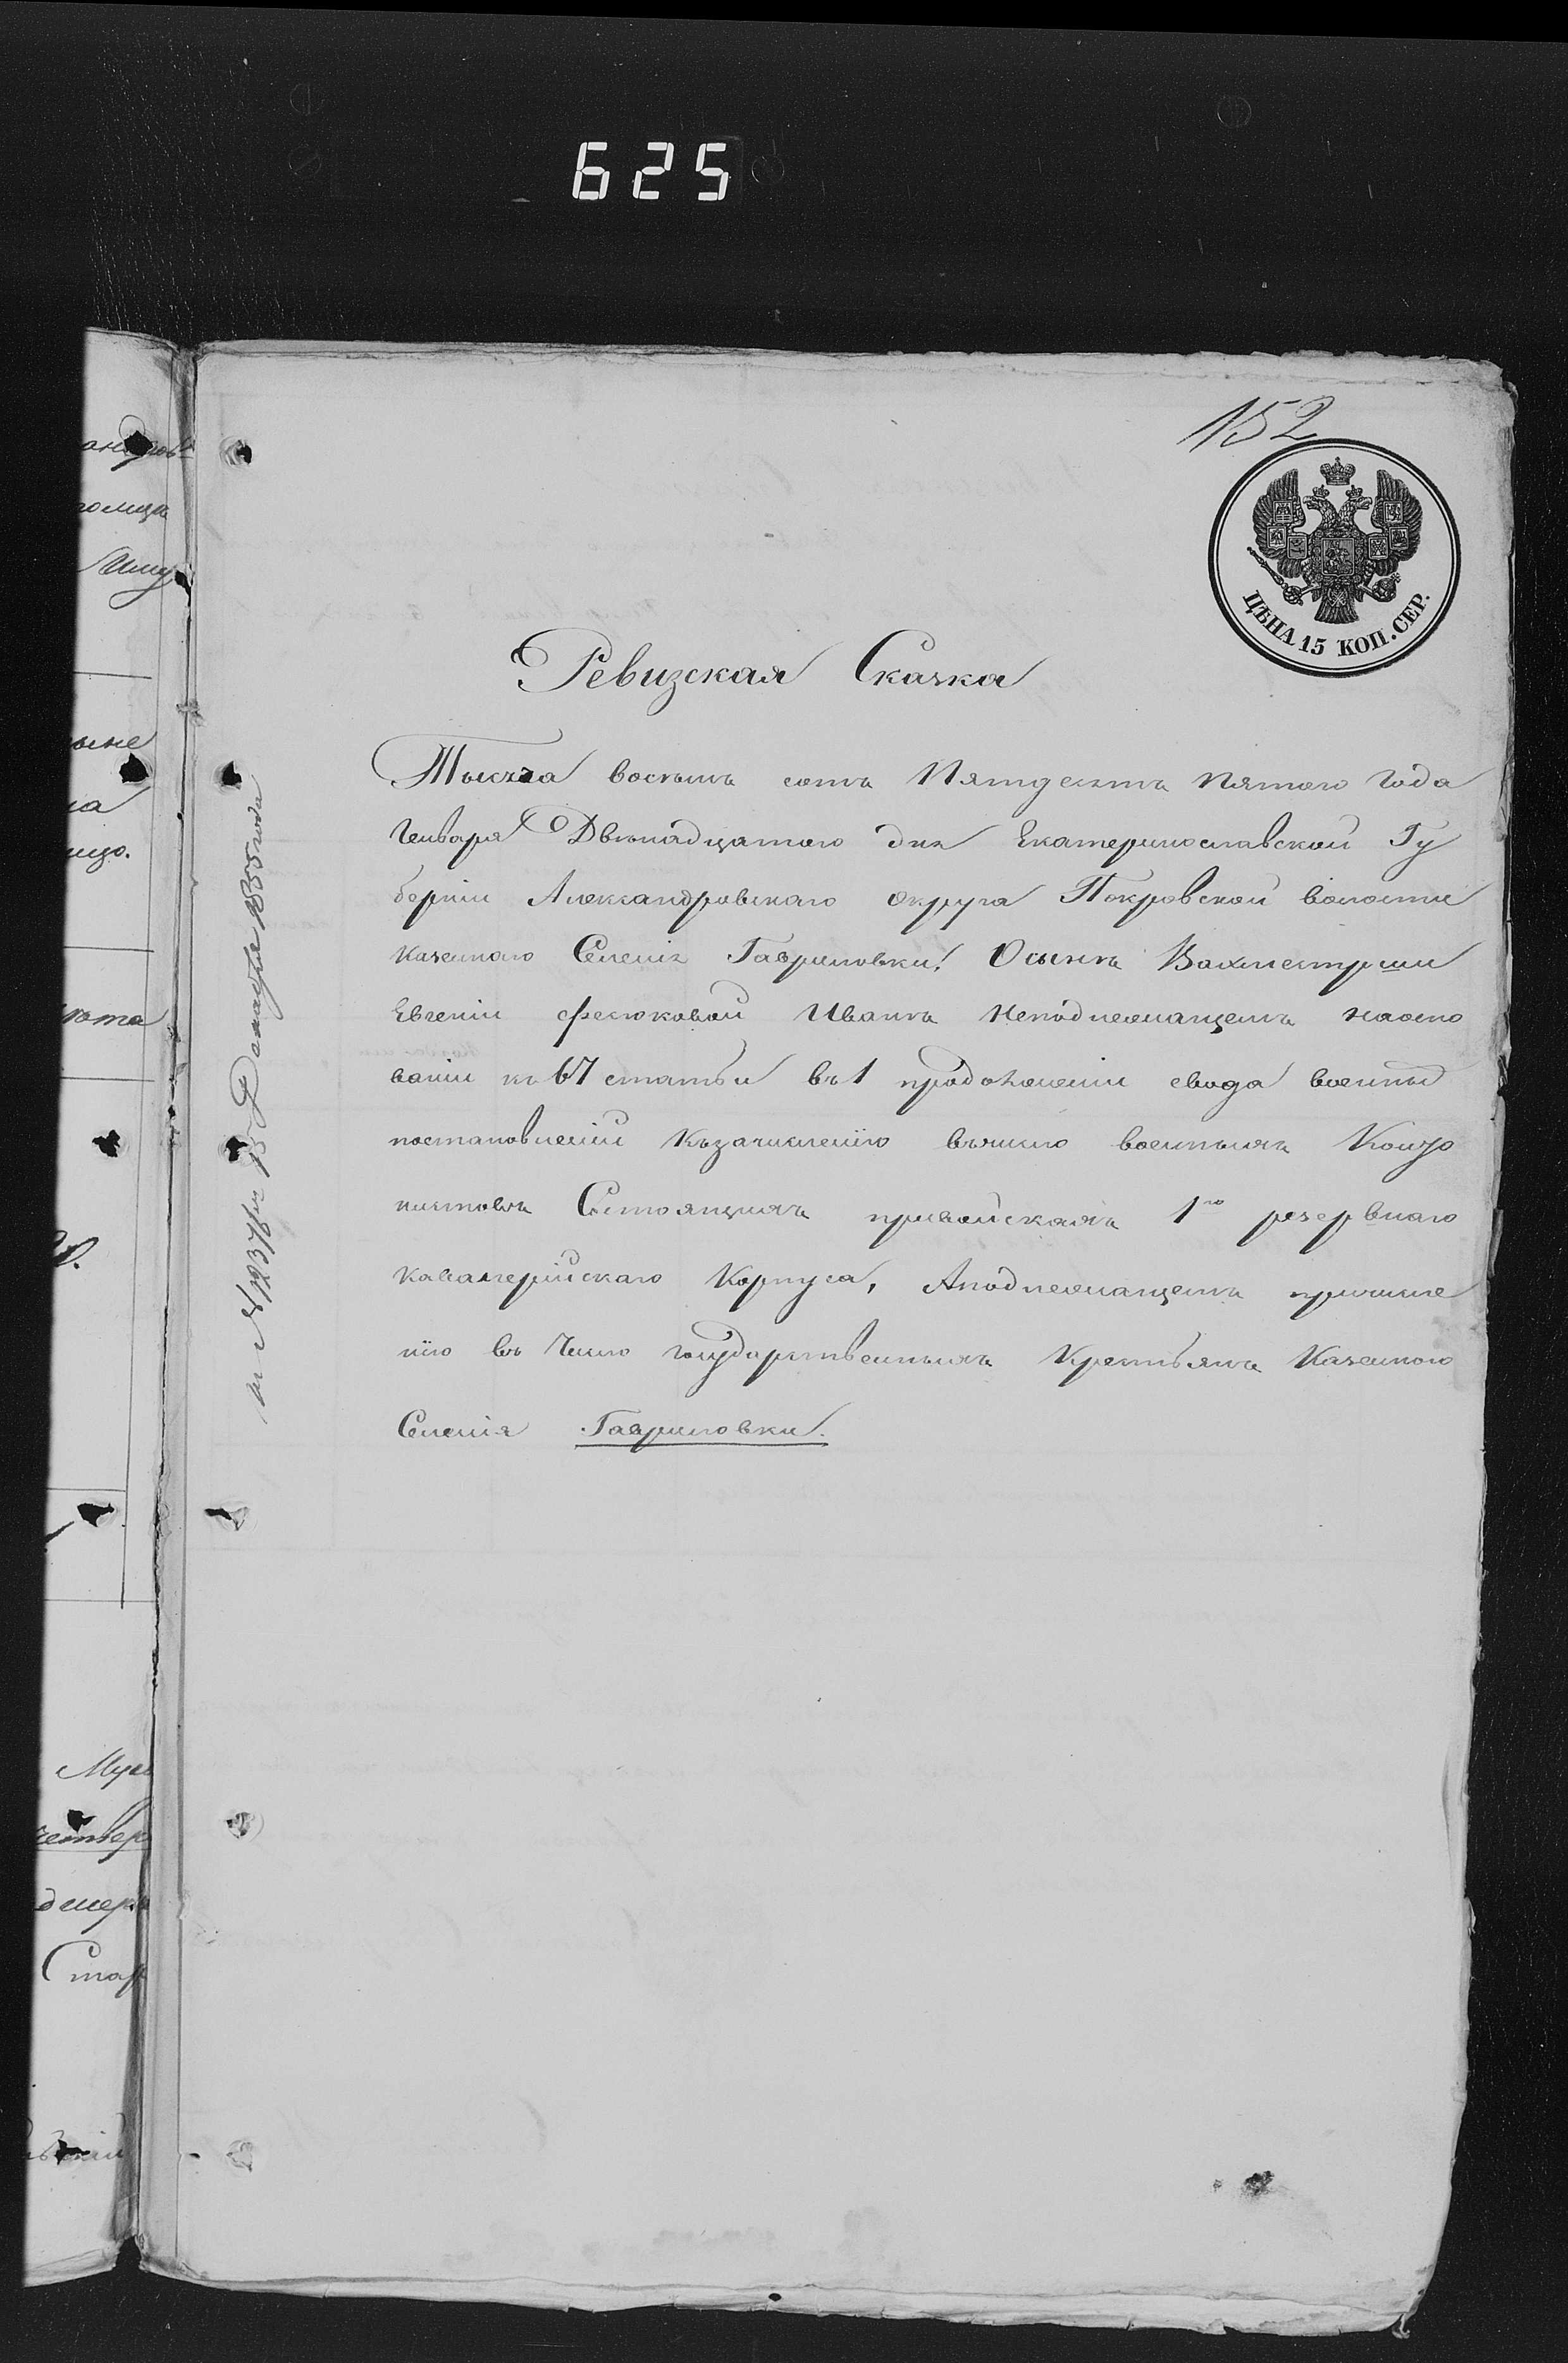 625
152
ЦѢНА 15 КОП. СЕР.
Ревизская Сказка
Тысяча восемь сотъ Пятдесятъ пятого года
Генваря Двѣнадцатого дня Екатеринославской Гу
берніи Александровскаго округа Покровской волости
казенного Селенія Гавриловки. О сынѣ Вахмистрши
Евгеніи Фесюковой Иванѣ неподлежащемъ наосно
ваніи къ 67 статьи въ 1 продолженіи свода военныхъ
постановленій Къзачисленію вчисло военныхъ Конто
нистовъ Состоящихъ привойскахъ 1го резервнаго
кавалерійскаго Корпуса, Аподлежащемъ причисле
нію въ Число государственныхъ Крестьянъ Казенного
Селенія Гавриловки.
15 Генваря 1855 года